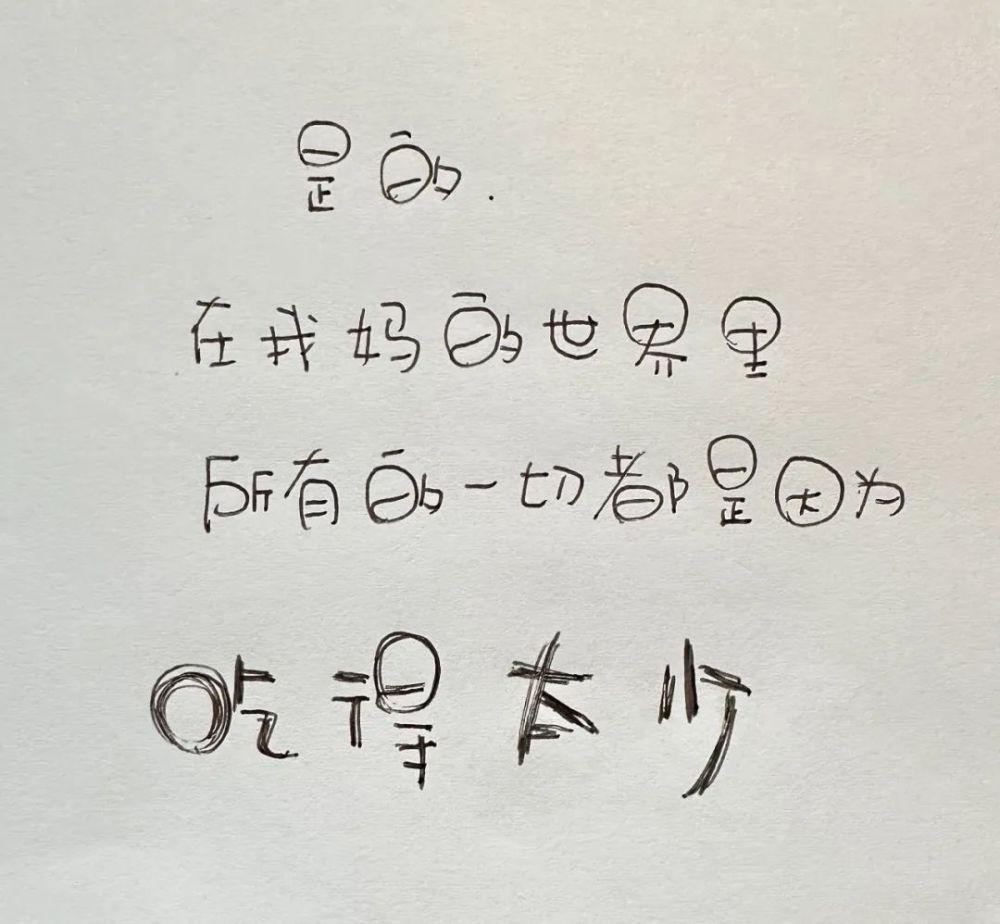 是的.
在我妈的世界里
所有的一切都是因为
吃得太少